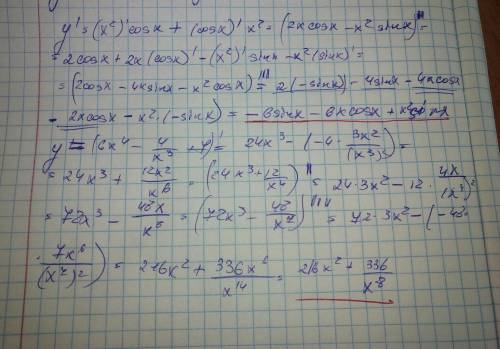 y' = (x²)'cosx + (cosx)'x² = (2xcosx - x²sinx)'' =
= 2cosx + 2x(cosx)' - (x²)'sinx - x²(sinx)' =
= (2cosx - 4xsinx - x²cosx)''' = 2(-sinx) - 4sinx - 4xcosx
- 2xcosx - x²·(-sinx) = -6sinx - 6xcosx + x² sinx
y = (6x⁴ - 4/x³ + 4)' = 24x³ - (-4· 3x²/(x³)²) =
= 24x³ + 12x²/x⁶ = (24x³ + 12/x⁴)'' = 24·3x² - 12· 4x/(x⁴)²
= 72x³ - 48x/x⁸ = (72x³ - 48/x⁷)''' = 72·3x² - (-48·
· 7x⁶/(x⁷)²) = 216x² + 336x⁶/x¹⁴ = 216x² + 336/x⁸